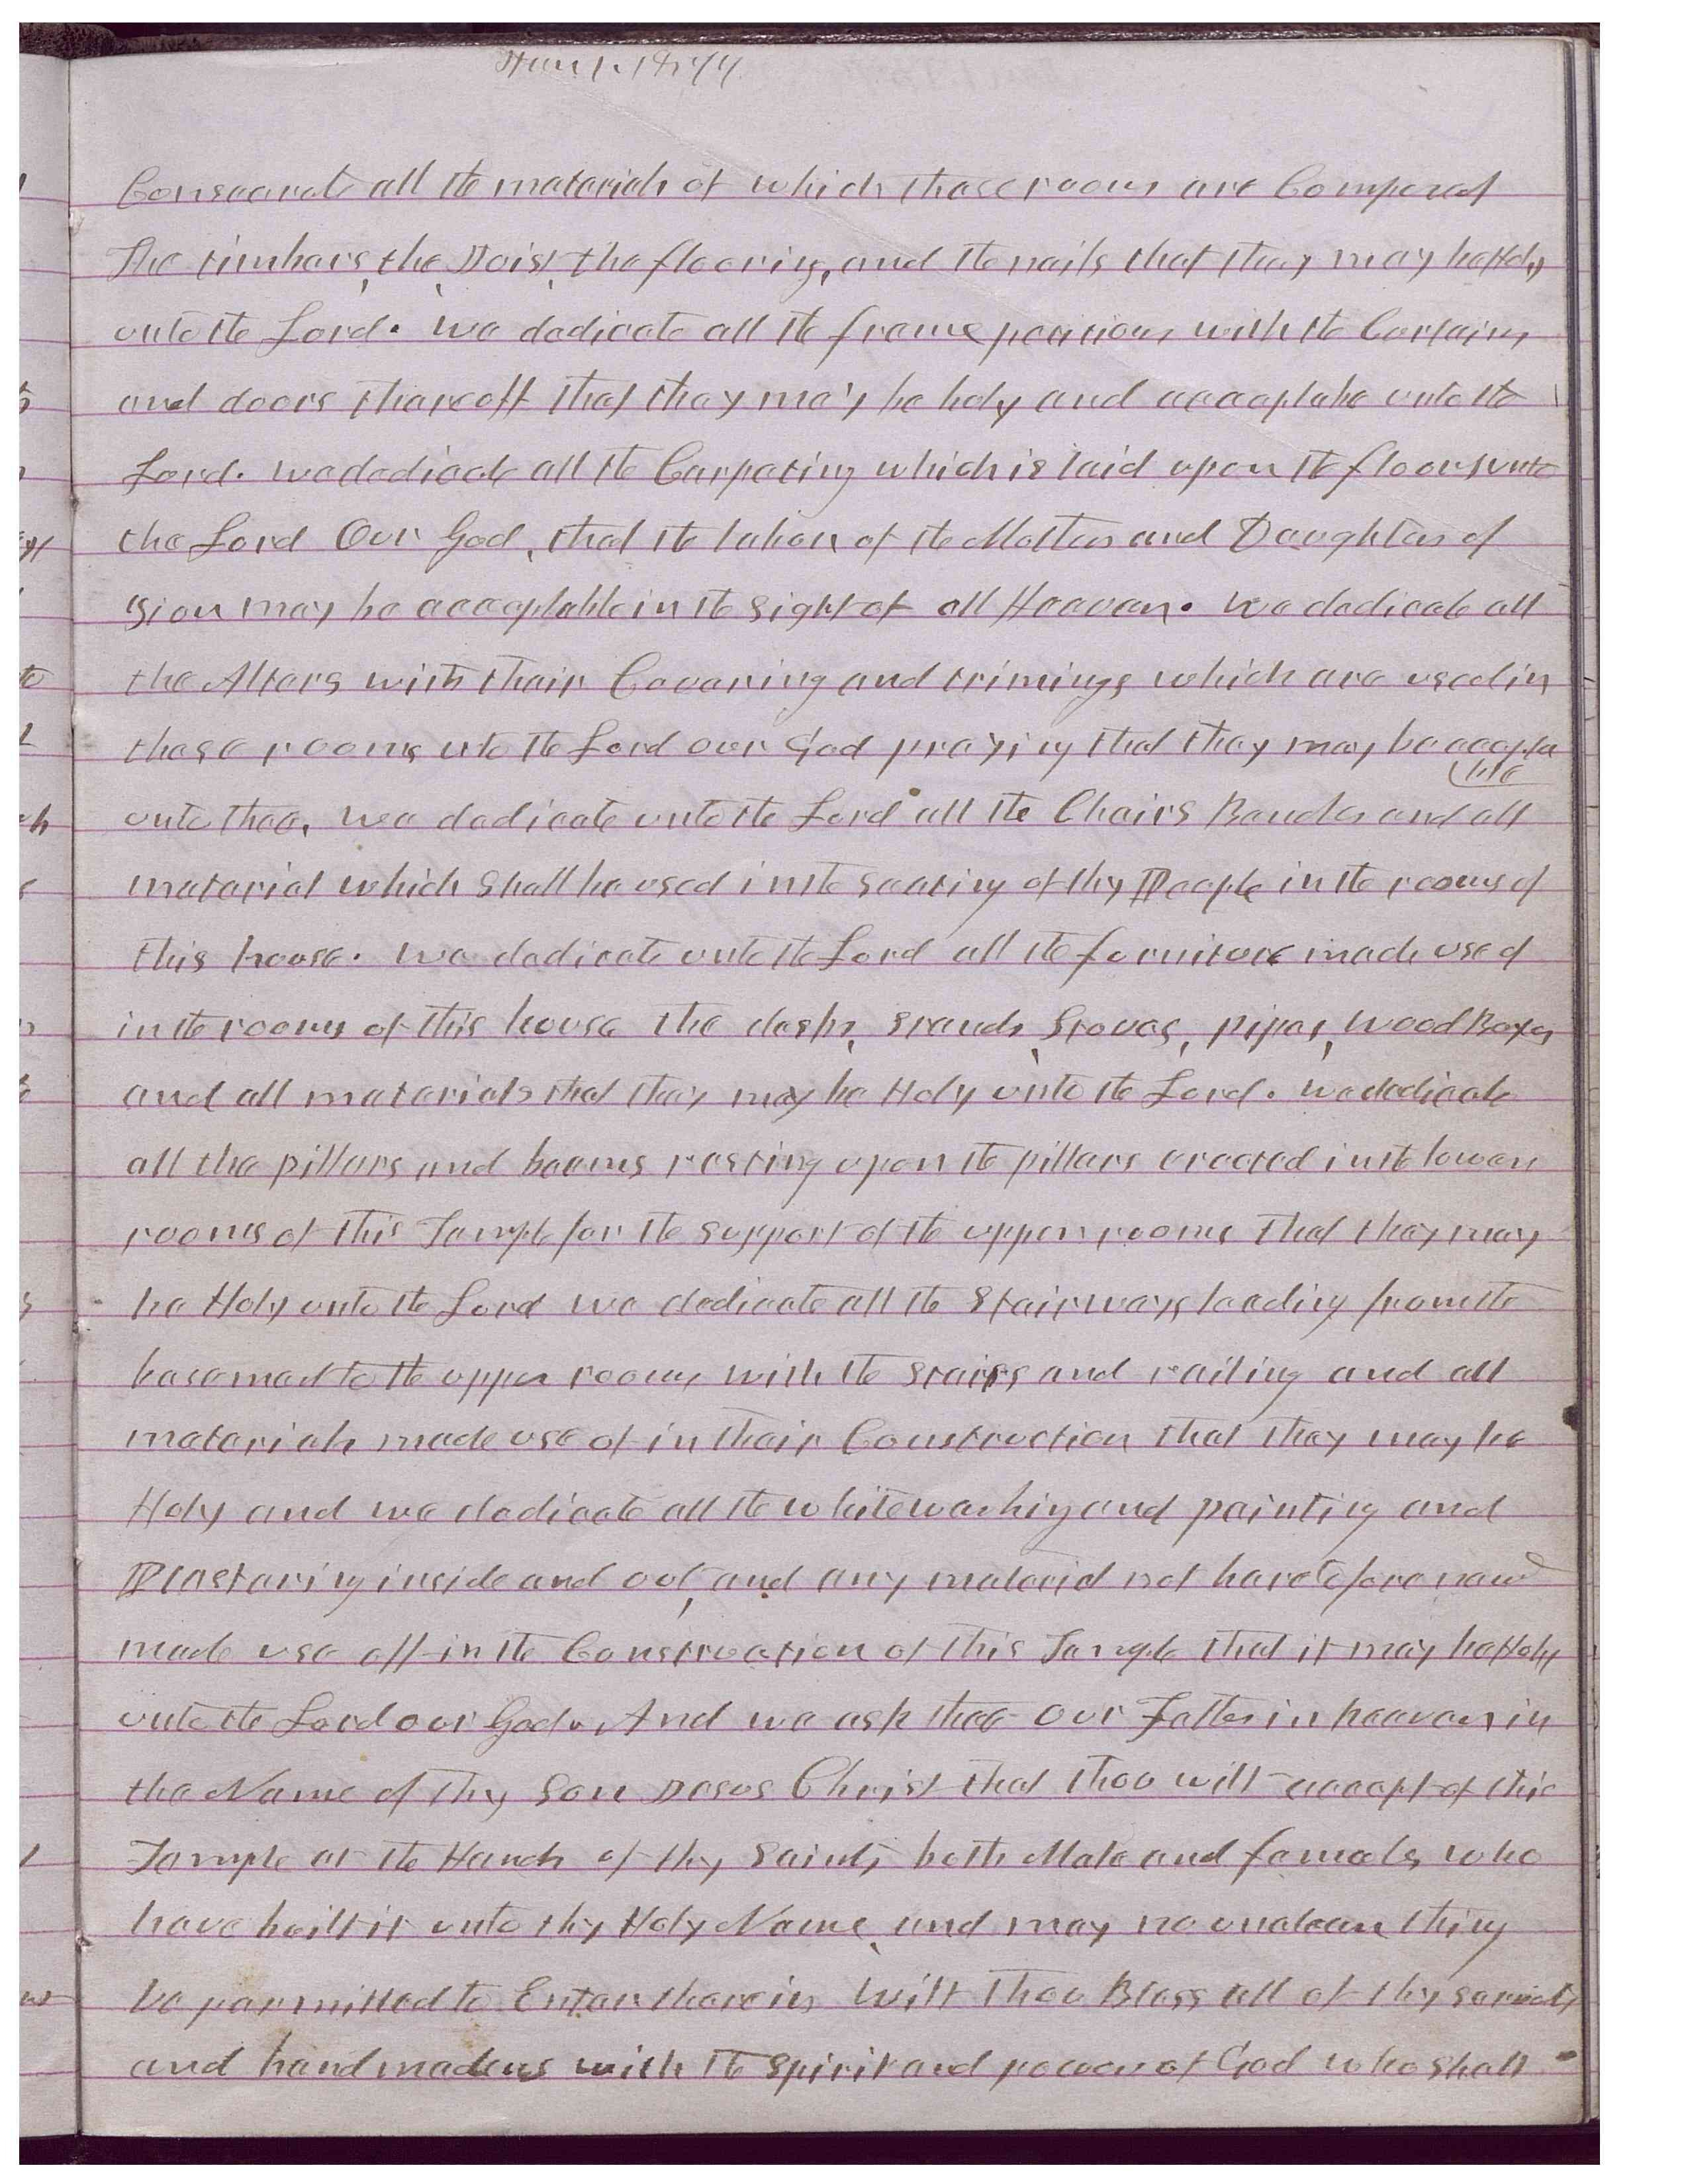 Jan 1. 1877
Consecrate all the materials of which these rooms are Composed
The timbers, the, Joist, the flooring, and the nails that they may be Holy
unto the Lord. we dedicate all the frame partitions with the Curtains
and doors thereoff that they may be holy and acceptabe unto the
Lord. we dedicate all the Carpeting which is laid upon the floors unto
the Lord Our God, that the labors of the Mothers and Daughters of
Zion may be acceptable in the sight of all Heaven. We dedicate all
the Altars with their Covering and trimings which are used in
these rooms unto the Lord our God praying that they may be accepta
ble
unto thee, we dedicate unto the Lord all the Chairs Benches and all
material which shall be used in the seating of thy People in the rooms of
this house. we dedicate unto the Lord all the furniture made use of
in the rooms of this house the desks, stands, Stoves, pipes, Wood Boxes
and all materials that they may be Holy unto the Lord. we dedicate
all the pillars and beams resting upon the pillars erected in the lower
rooms of this Temple for the support of the upper rooms that they may
be Holy unto the Lord we dedicate all the Stairways leading from the
basement to the upper rooms with the stairs and railing and all
materials made use of in their Construction that they may be
Holy and we dedicate all the whitewashing and painting and
Plastering inside and out, and any material not heretofore named
made use off in the Construction of this Temple that it may be Holy
unto the Lord our God. And we ask thee Our Father in heaven in
the Name of thy Son Jesus Christ that thou will accept of this
Temple at the Hands of thy Saints both Male and female, who
have built it unto thy Holy Name, and may no unclean thing
be permitted to Enter therein Wilt thou Bless all of thy servants
and handmadens with the spirit and power of God who shall